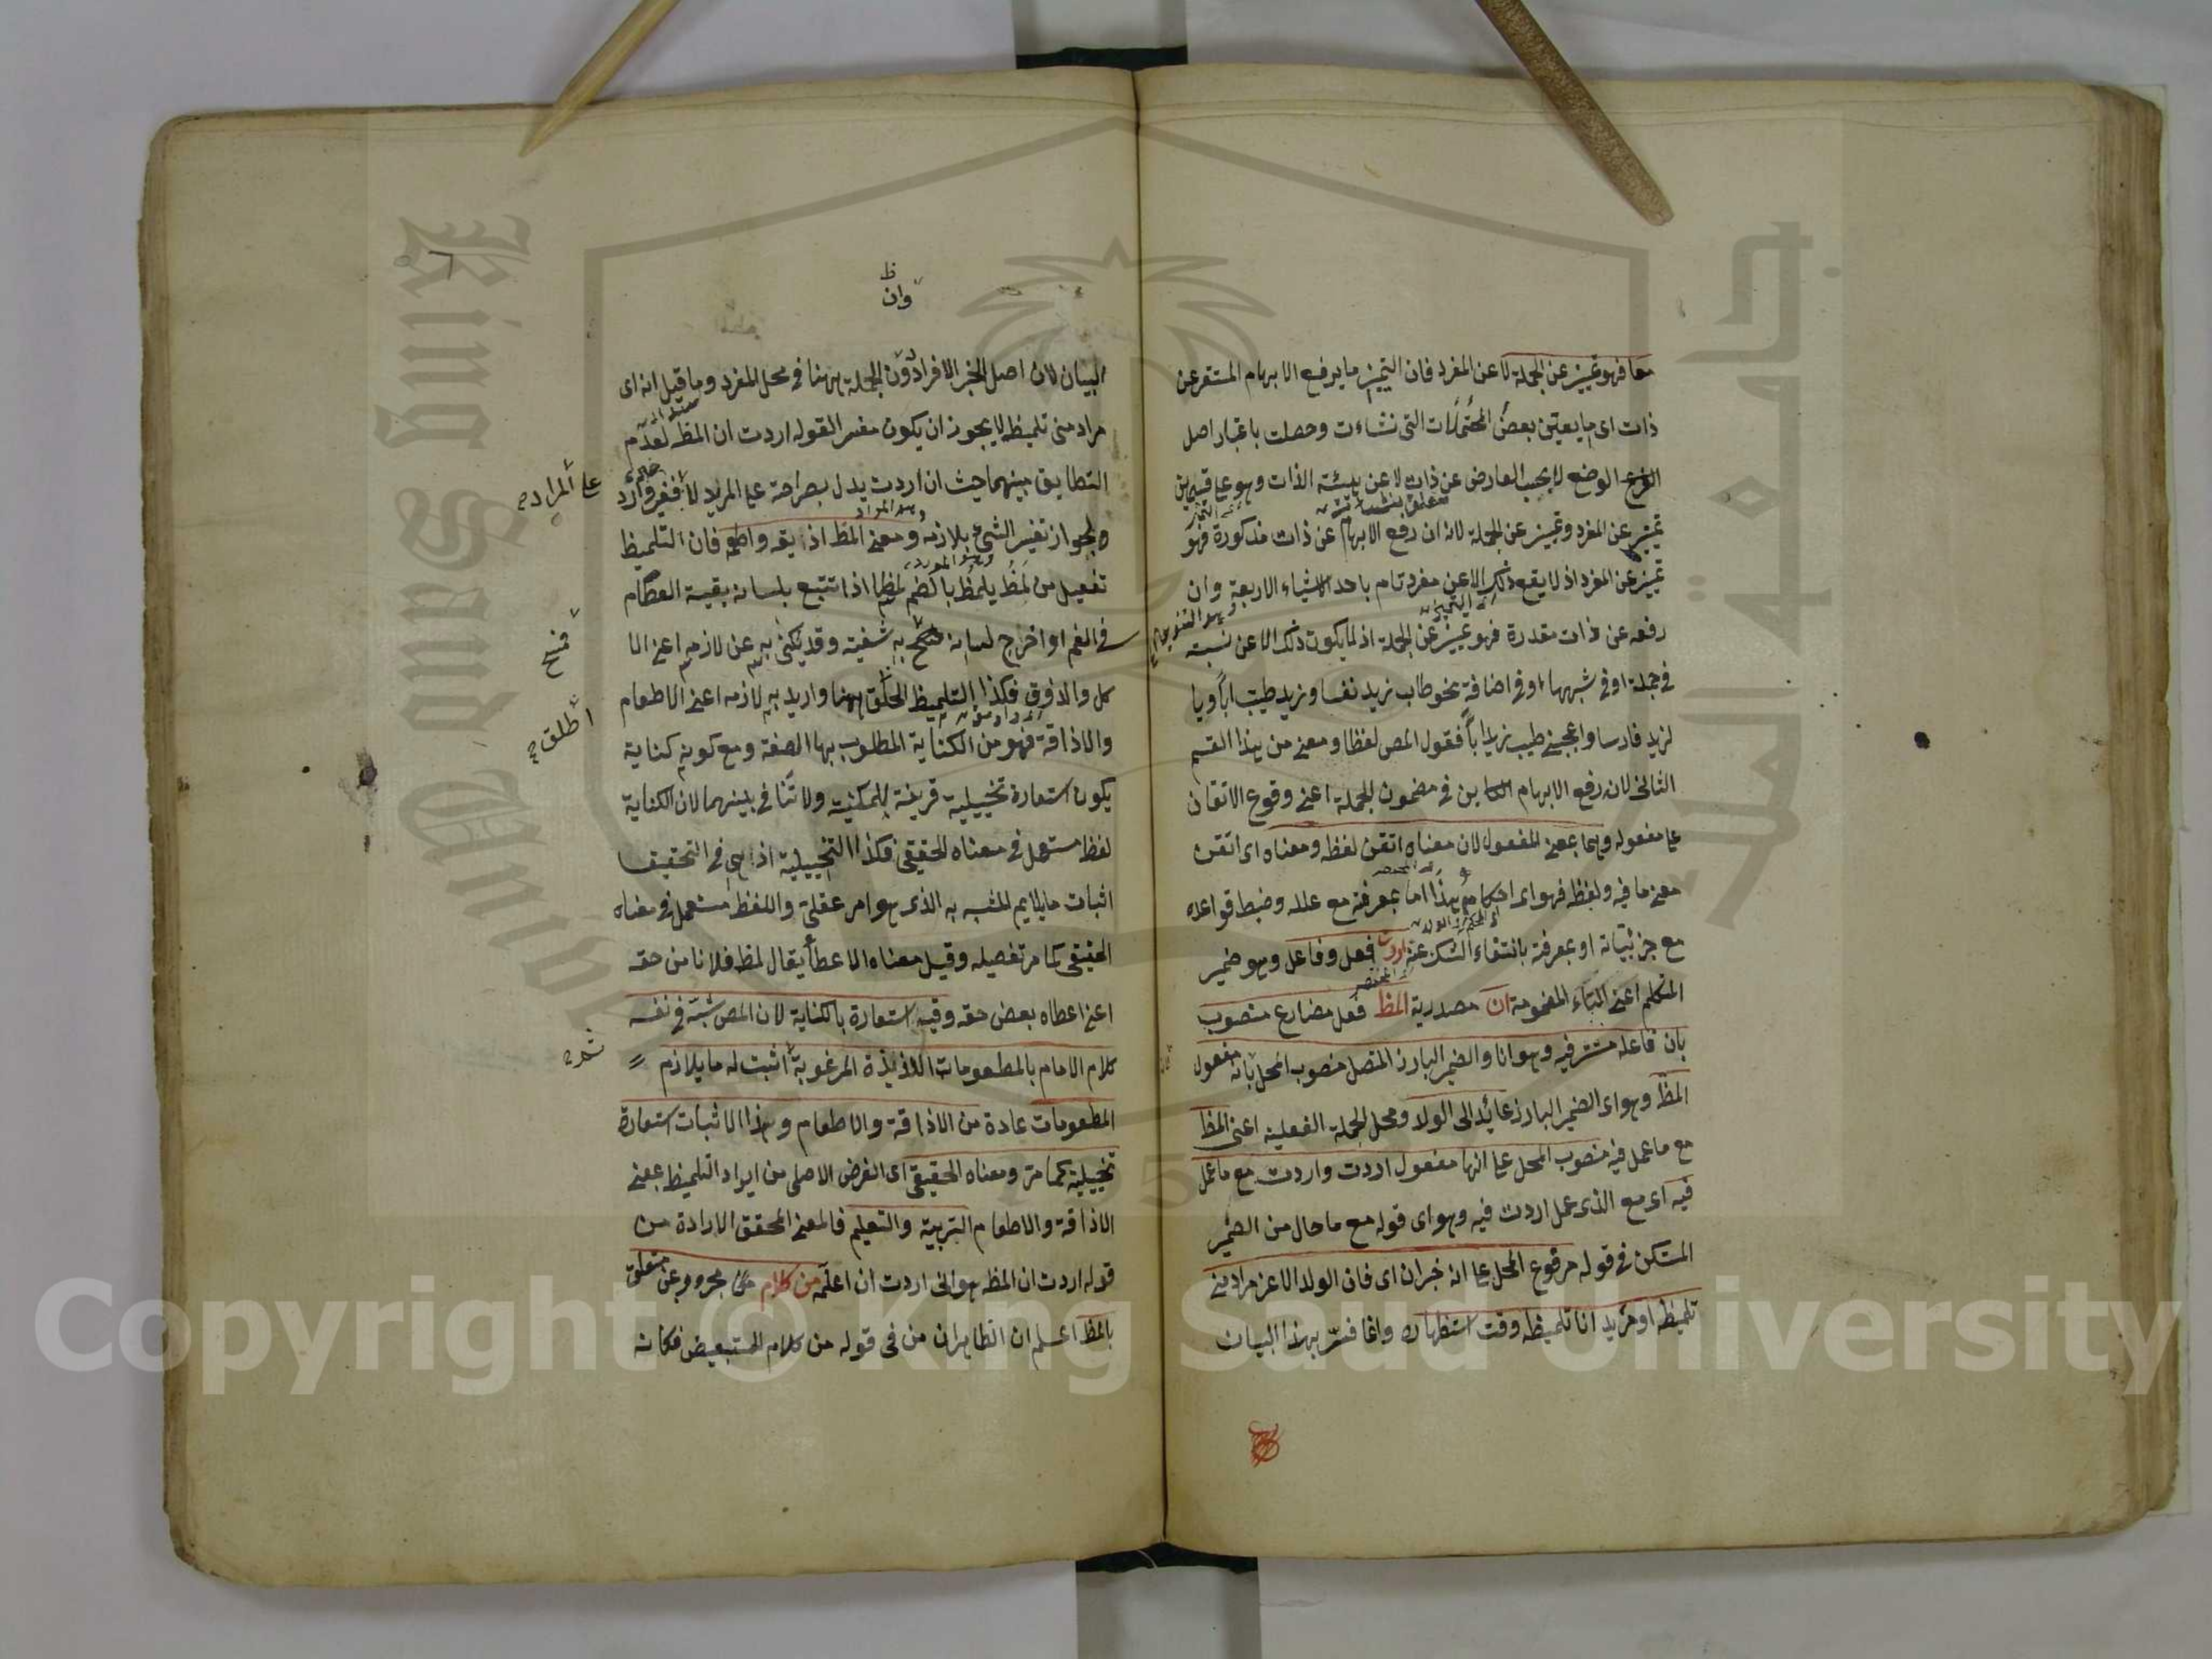 معا فهو تمييز عن الجملة لا عن المفرد فان التمييز ما يرفع الابهام المستقر عن
ذات اى ما يعين بعض المحتملات التى نشاءت وحصلت باعتبار اصل
الوضع لا بحسب العارض عن ذات لا عن هيئة الذات وهو على قسمين
تمييز عن المفرد وتمييز عن الجملة لانه ان رفع الابهام عن ذات مذكورة فهو
تمييز عن المفرد اذ لا يقع ذلك الا عن مفرد تام باحد الاشياء الاربعة وان
رفعه عن ذات مقدرة فهو تمييز عن الجملة اذ لا يكون ذلك الا عن نسبته
فى جملة او فى شبهها او فى اضافة نحو طاب زيد نفسا وزيد طيب ابا ويا
لزيد فارسا واعجبنى طيب زيد ابا فقول المص لفظا ومعنى من هذا القسم
الثانى لان رفع الابهام الكاين فى مضمون الجملة اعنى وقوع الاتقان
على مفعوله وهما بمعنى المفعول لان معناه اتقن لفظه ومعناه اى اتقن
معنى ما فيه ولفظه فهو اى احكام هذا اما بمعرفته مع علله وضبط قواعده
مع جزئياته او بمعرفة بانتفاء الشك عنه اردت فعل وفاعل وهو ضمير
المتكلم اعنى التاء المضمومة ان مصدرية المظ فعل مضارع منصوب
بان فاعله مستتر فيه وهو انا والضمير البارز المتصل منصوب المحل بانه مفعول
المظ وهو اى الضمير البارز عائد الى الولد ومحل الجملة الفعلية اعنى المظ
مع ما عمل فيه منصوب المحل على انها مفعول اردت واردت مع ما عمل
فيه اى مع الذى عمل اردت فيه وهو اى قوله مع ما حال من الضمير
المستكن فى قوله مرفوع المحل على انه خبر ان اى فان الولد الاعز مراد منى
تلميظه او مريد انا تلميظه وقت استظهاره وانما فسر بهذا البيان
ظ
وان
البيان لان اصل الخبر الافراد دون الجملة ههنا فى محل المفرد وما قيل انه اى
مراد منى تلميظه لا يجوز ان يكون مفسر القوله اردت ان المظه لعدم
التطابق بينهما حيث ان اردت يدل بصراحته على المريد لا فغير وارد
على المراد
لجواز تفسير الشيء بلازمه ومعنى المظ اذيقه واطعمه فان التلميظ
تفعيل من لمظ يلمظ بالضم لمظا اذا تتبع بلسانه بقية الطعام
فى الفم او اخرج لسانه فمسح به شفتيه وقد يكنى به عن لازمه اعنى الا
فمسح
كل والذوق فكذا التلميظ اطلق ههنا واريد به لازمه اعنى الاطعام
اطلق
والاذاقة فهو من الكناية المطلوب بها الصفة ومع كونه كناية
يكون استعارة تخييلية قرينة للمكنية ولا تنافى بينهما لان الكناية
لفظ مستعمل فى معناه الحقيقى فكذا التخييلية اذ هى فى التحقيق
اثبات ما يلايم المشبه به الذى هو امر عقلى واللفظ مستعمل فى معناه
الحقيقى كما مر تفصيله وقيل معناه الاعطاء يقال لمظ فلانا من حقه
اعنى اعطاه بعض حقه وفيه استعارة بالكناية لان المص شبه فى نفسه
كلام الامام بالمطعومات اللذيذة المرغوبة اثبت له ما يلازم
المطعومات عادة من الاذاقة والاطعام وهذا الاثبات استعارة
تخييلية كما مر ومعناه الحقيقى اى الغرض الاصلى من ايراد التلميظ بمعنى
الاذاقة والاطعام التربية والتعليم فالمعنى المحقق الارادة من
قوله اردت ان المظه هو انى اردت ان اعلمه من كلام مجرور بمن متعلق
بالمظ اعلم ان الظاهر ان من فى قوله من كلام للتبعيض فكانه